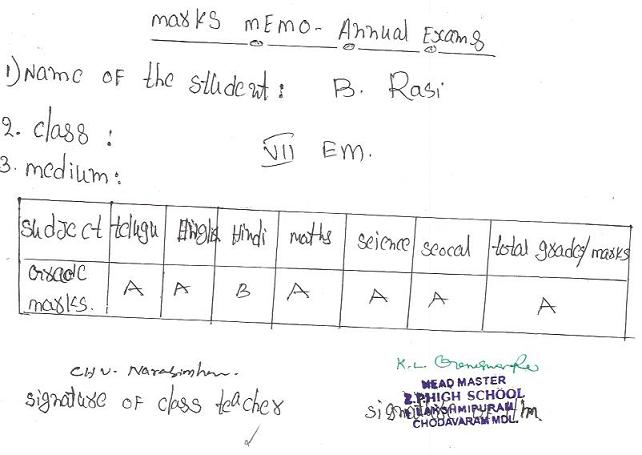 marks mEMO - Annual Exams
1) Name OF the student : B. Rasi
2. class : VII EM.
3. medium :
Subject telugu English Hindi maths science social total grades/marks
Grade marks. A A B A A A A
CH V. Narasimham. K.L.
signature OF class teacher
HEAD MASTER
Z.P.HIGH SCHOOL
LAKSHMIPURAM
CHODAVARAM MDL.